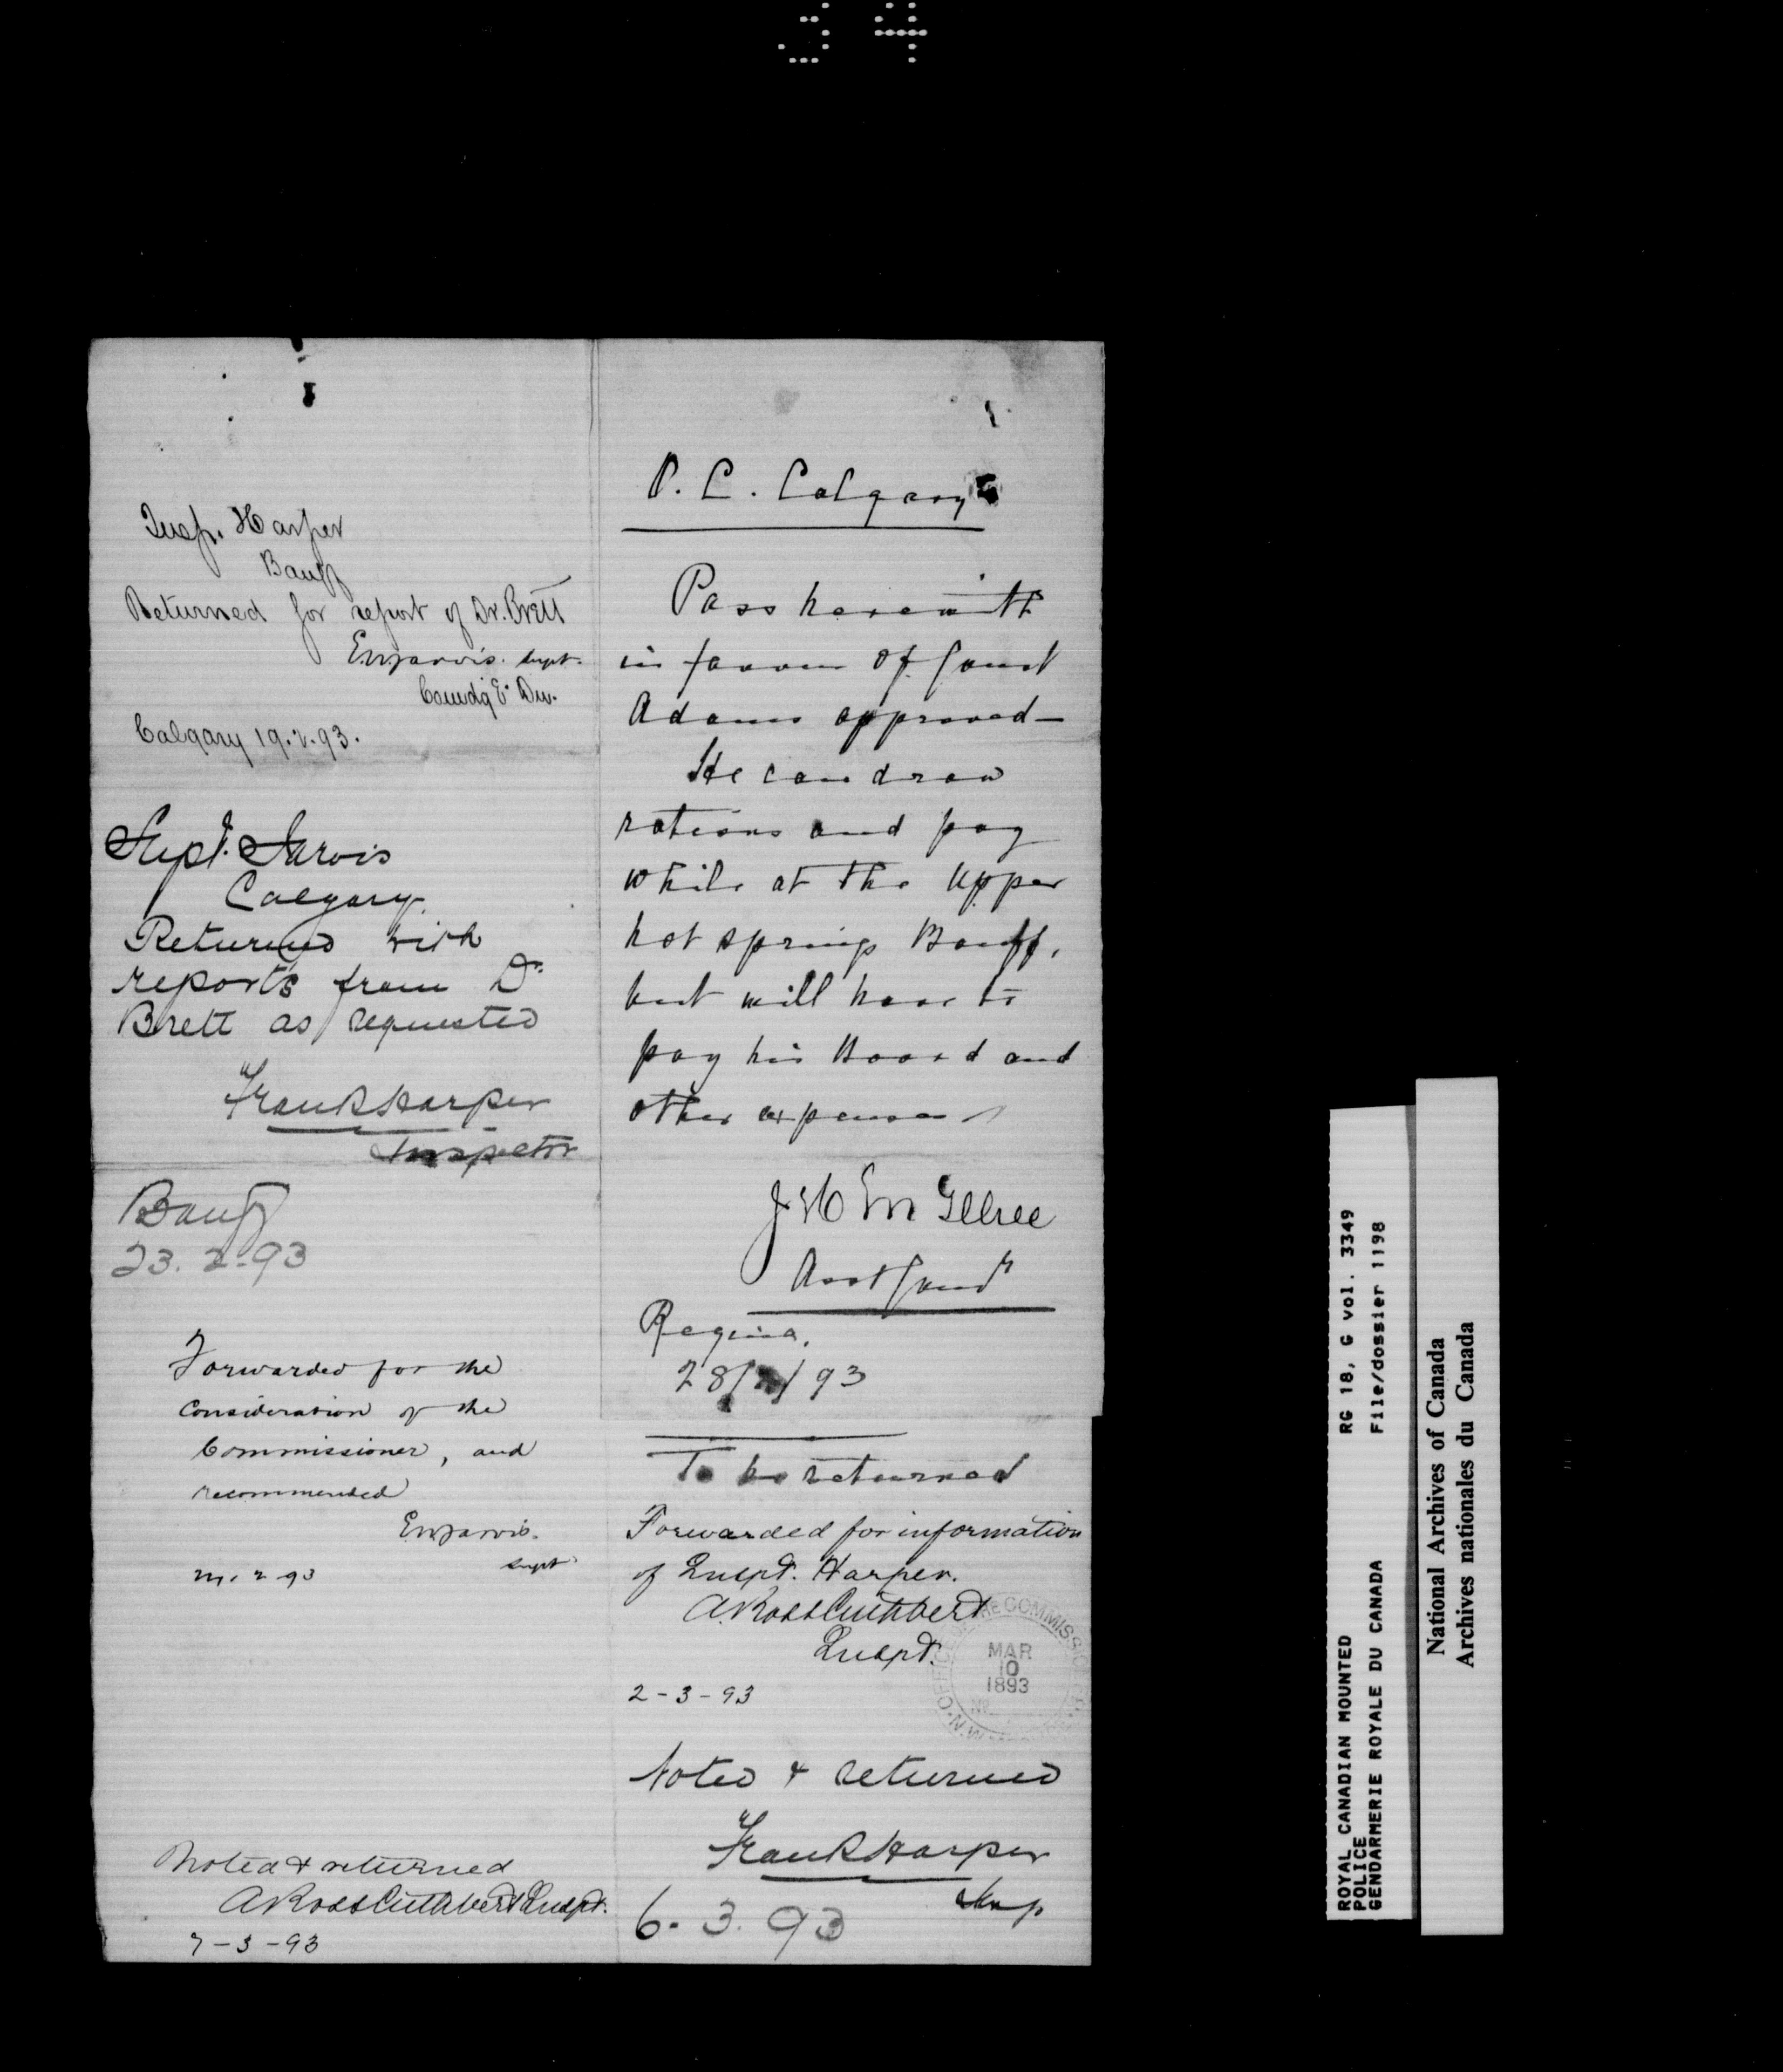 34
Insp. Harper
Banff
Returned for report of Dr. Brett
EWJarvis. Supt.
Comdg E. Div.
Calgary 19.2.93.
Supt. Jarvis
Calgary.
Returned with
reports from Dr
Brett as requested
Frank Harper
Inspector
Banff
23.2.93
Forwarded for the
consideration of the
Commissioner, and
recommended
EWJarvis.
Supt
2 93
Noted & returned
A Ross Cuthbert Inspt.
7-3-93
O.C. Calgary
Pass herewith
in favour of Const
Adams approved—
He can draw
rations and pay
while at the Upper
hot springs Banff,
but will have to
pay his Board and
other expenses
J H McIllree
Asst Comr
Regina.
28/2/93
To be returned
Forwarded for information
of Inspt. Harper.
A. Ross Cuthbert
Inspt.
2-3-93
OFFICE OF THE COMMISSIONER
MAR
10
1893
No
N.W.
Noted & returned
Frank Harper
Insp
6.3.93
ROYAL CANADIAN MOUNTED RG 18, G vol. 3349
POLICE
GENDARMERIE ROYALE DU CANADA File/dossier 1198
National Archives of Canada
Archives nationales du Canada